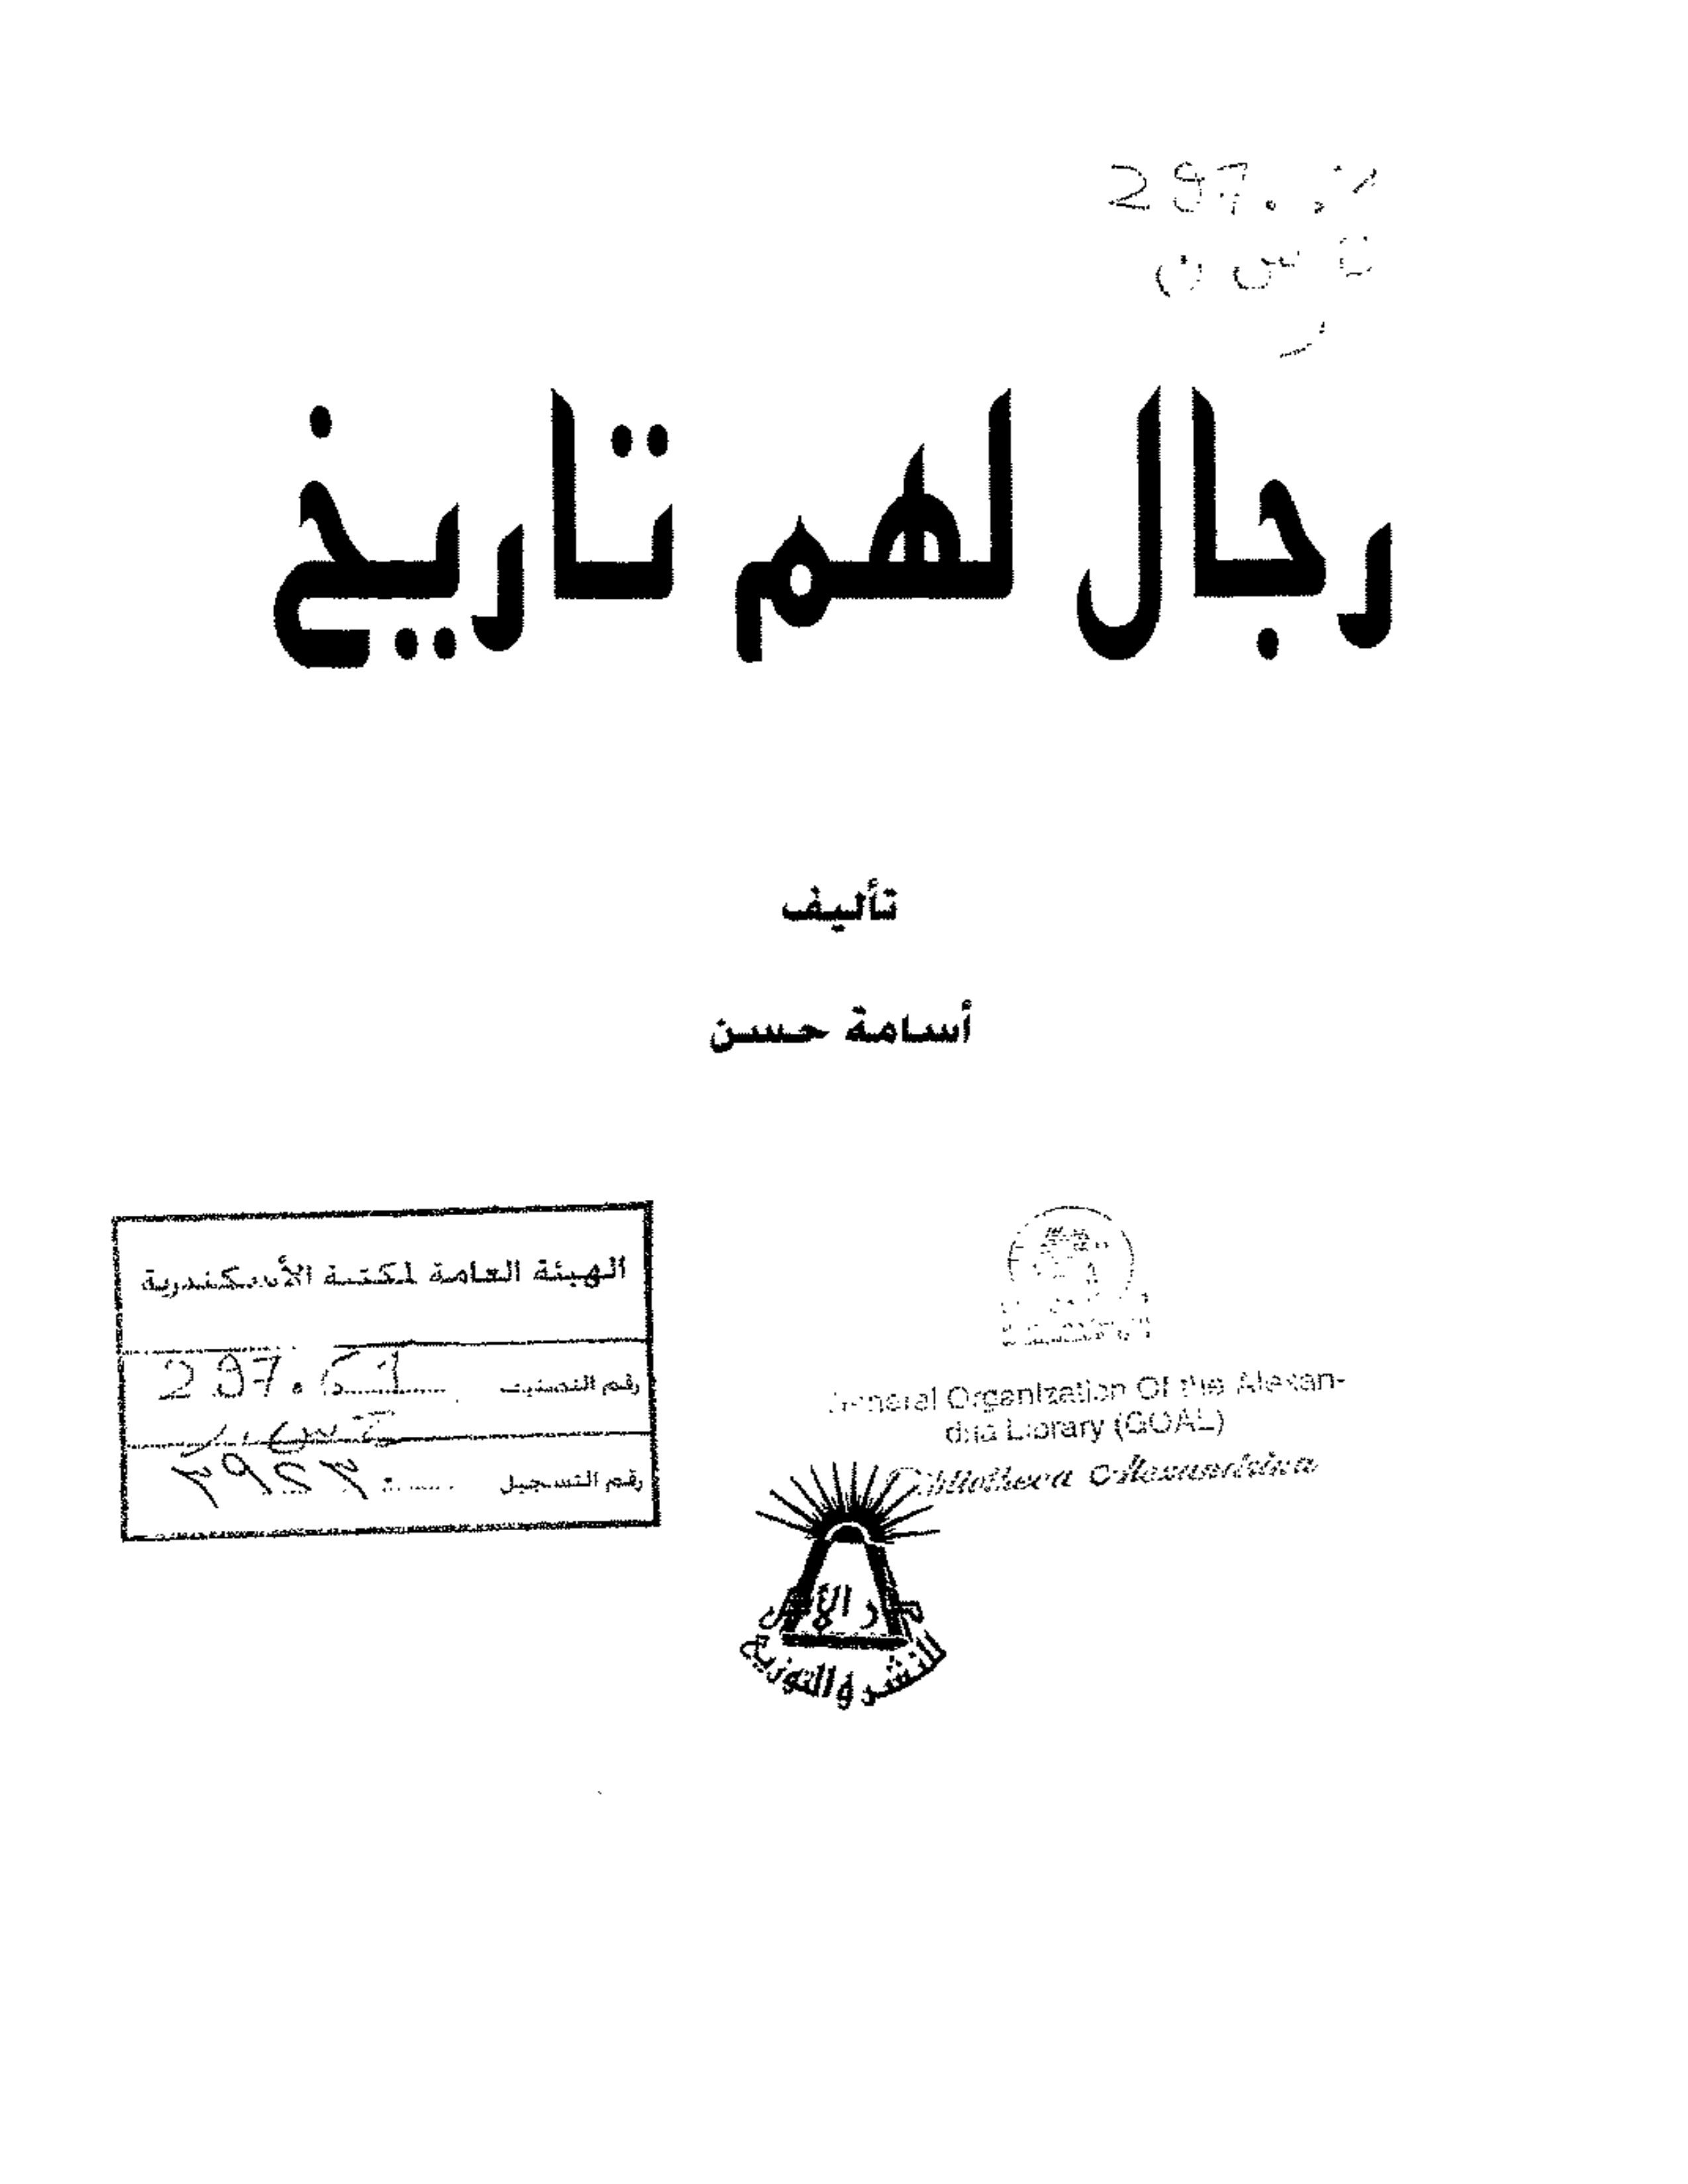 رجال لهم تاريخ
تأليف
أسامة حسن
الهيئة العامة لمكتبة الأسكندرية
رقم التصنيف 297.61
رقم التسجيل
General Organization Of the Alexan-
dria Library (GOAL)
Bibliotheca Alexandrina
دار الأمل
للنشر والتوزيع